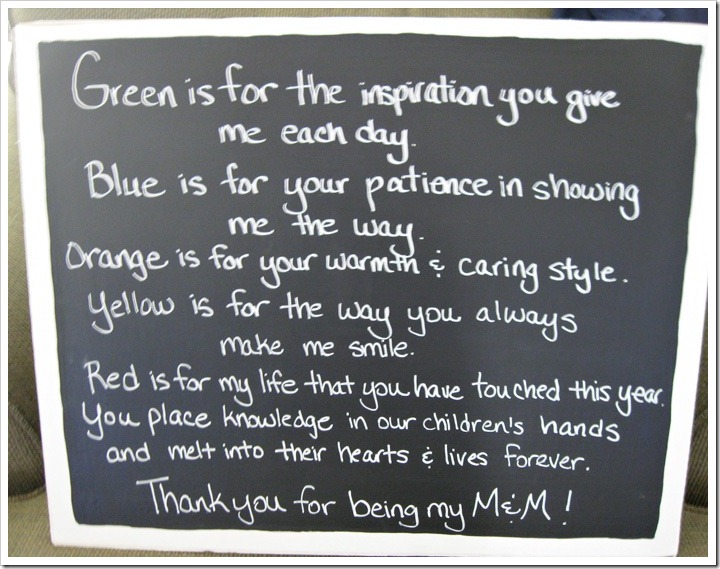 Green is for the inspiration you give
me each day.
Blue is for your patience in showing
me the way.
Orange is for your warmth & caring style.
Yellow is for the way you always
make me smile.
Red is for my life that you have touched this year.
You place knowledge in our children's hands
and melt into their hearts & lives forever.
Thank you for being my M&M!